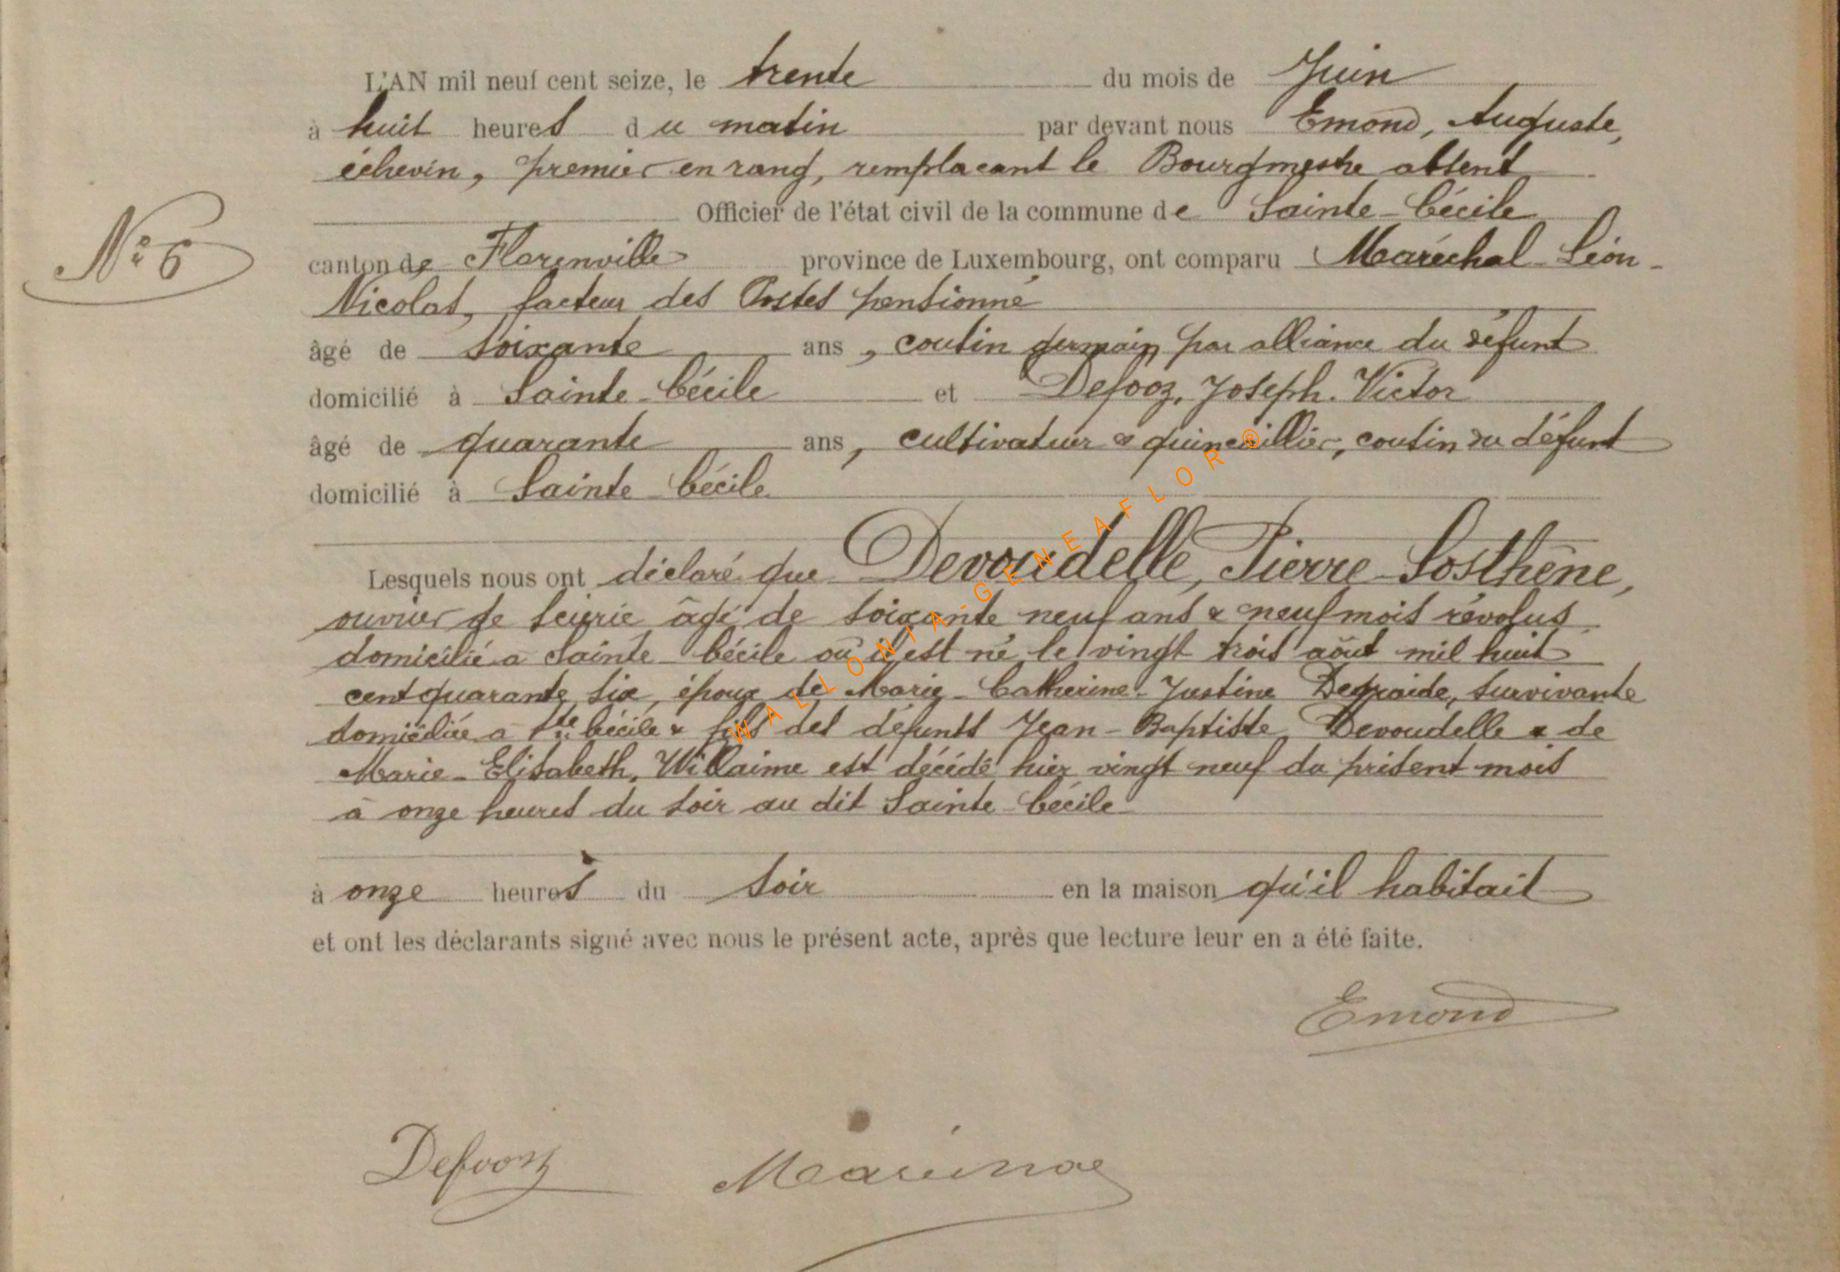 L'AN mil neuf cent seize, le trente du mois de Juin
à huit heures du matin par devant nous Emond, Auguste,
échevin, premier en rang, remplacant le Bourgmestre absent
Officier de l'état civil de la commune de Sainte-Cécile
N° 6
canton de Florenville province de Luxembourg, ont comparu Maréchal Léon-
Nicolas, facteur des Postes pensionné
âgé de soixante ans, cousin germain par alliance du défunt
domicilié à Sainte-Cécile et Defooz, Joseph-Victor
âgé de quarante ans, cultivateur & quincaillier, cousin du défunt
domicilié à Sainte-Cécile
Lesquels nous ont déclaré que Devoudelle, Pierre-Sosthène,
ouvrier de scierie âgé de soixante neuf ans & neuf mois révolus
domicilié à Sainte-Cécile où il est né le vingt trois août mil huit
cent quarante six, époux de Marie-Catherine-Justine Degraide, survivante
domiciliée à Ste Cécile & fils des défunts Jean-Baptiste Devoudelle & de
Marie-Elisabeth, Willaime est décédé hier vingt neuf du présent mois
à onze heures du soir au dit Sainte-Cécile
à onze heures du soir en la maison qu'il habitait
et ont les déclarants signé avec nous le présent acte, après que lecture leur en a été faite.
Emond
Defooz
WALLONIA-GENEAFLOR®